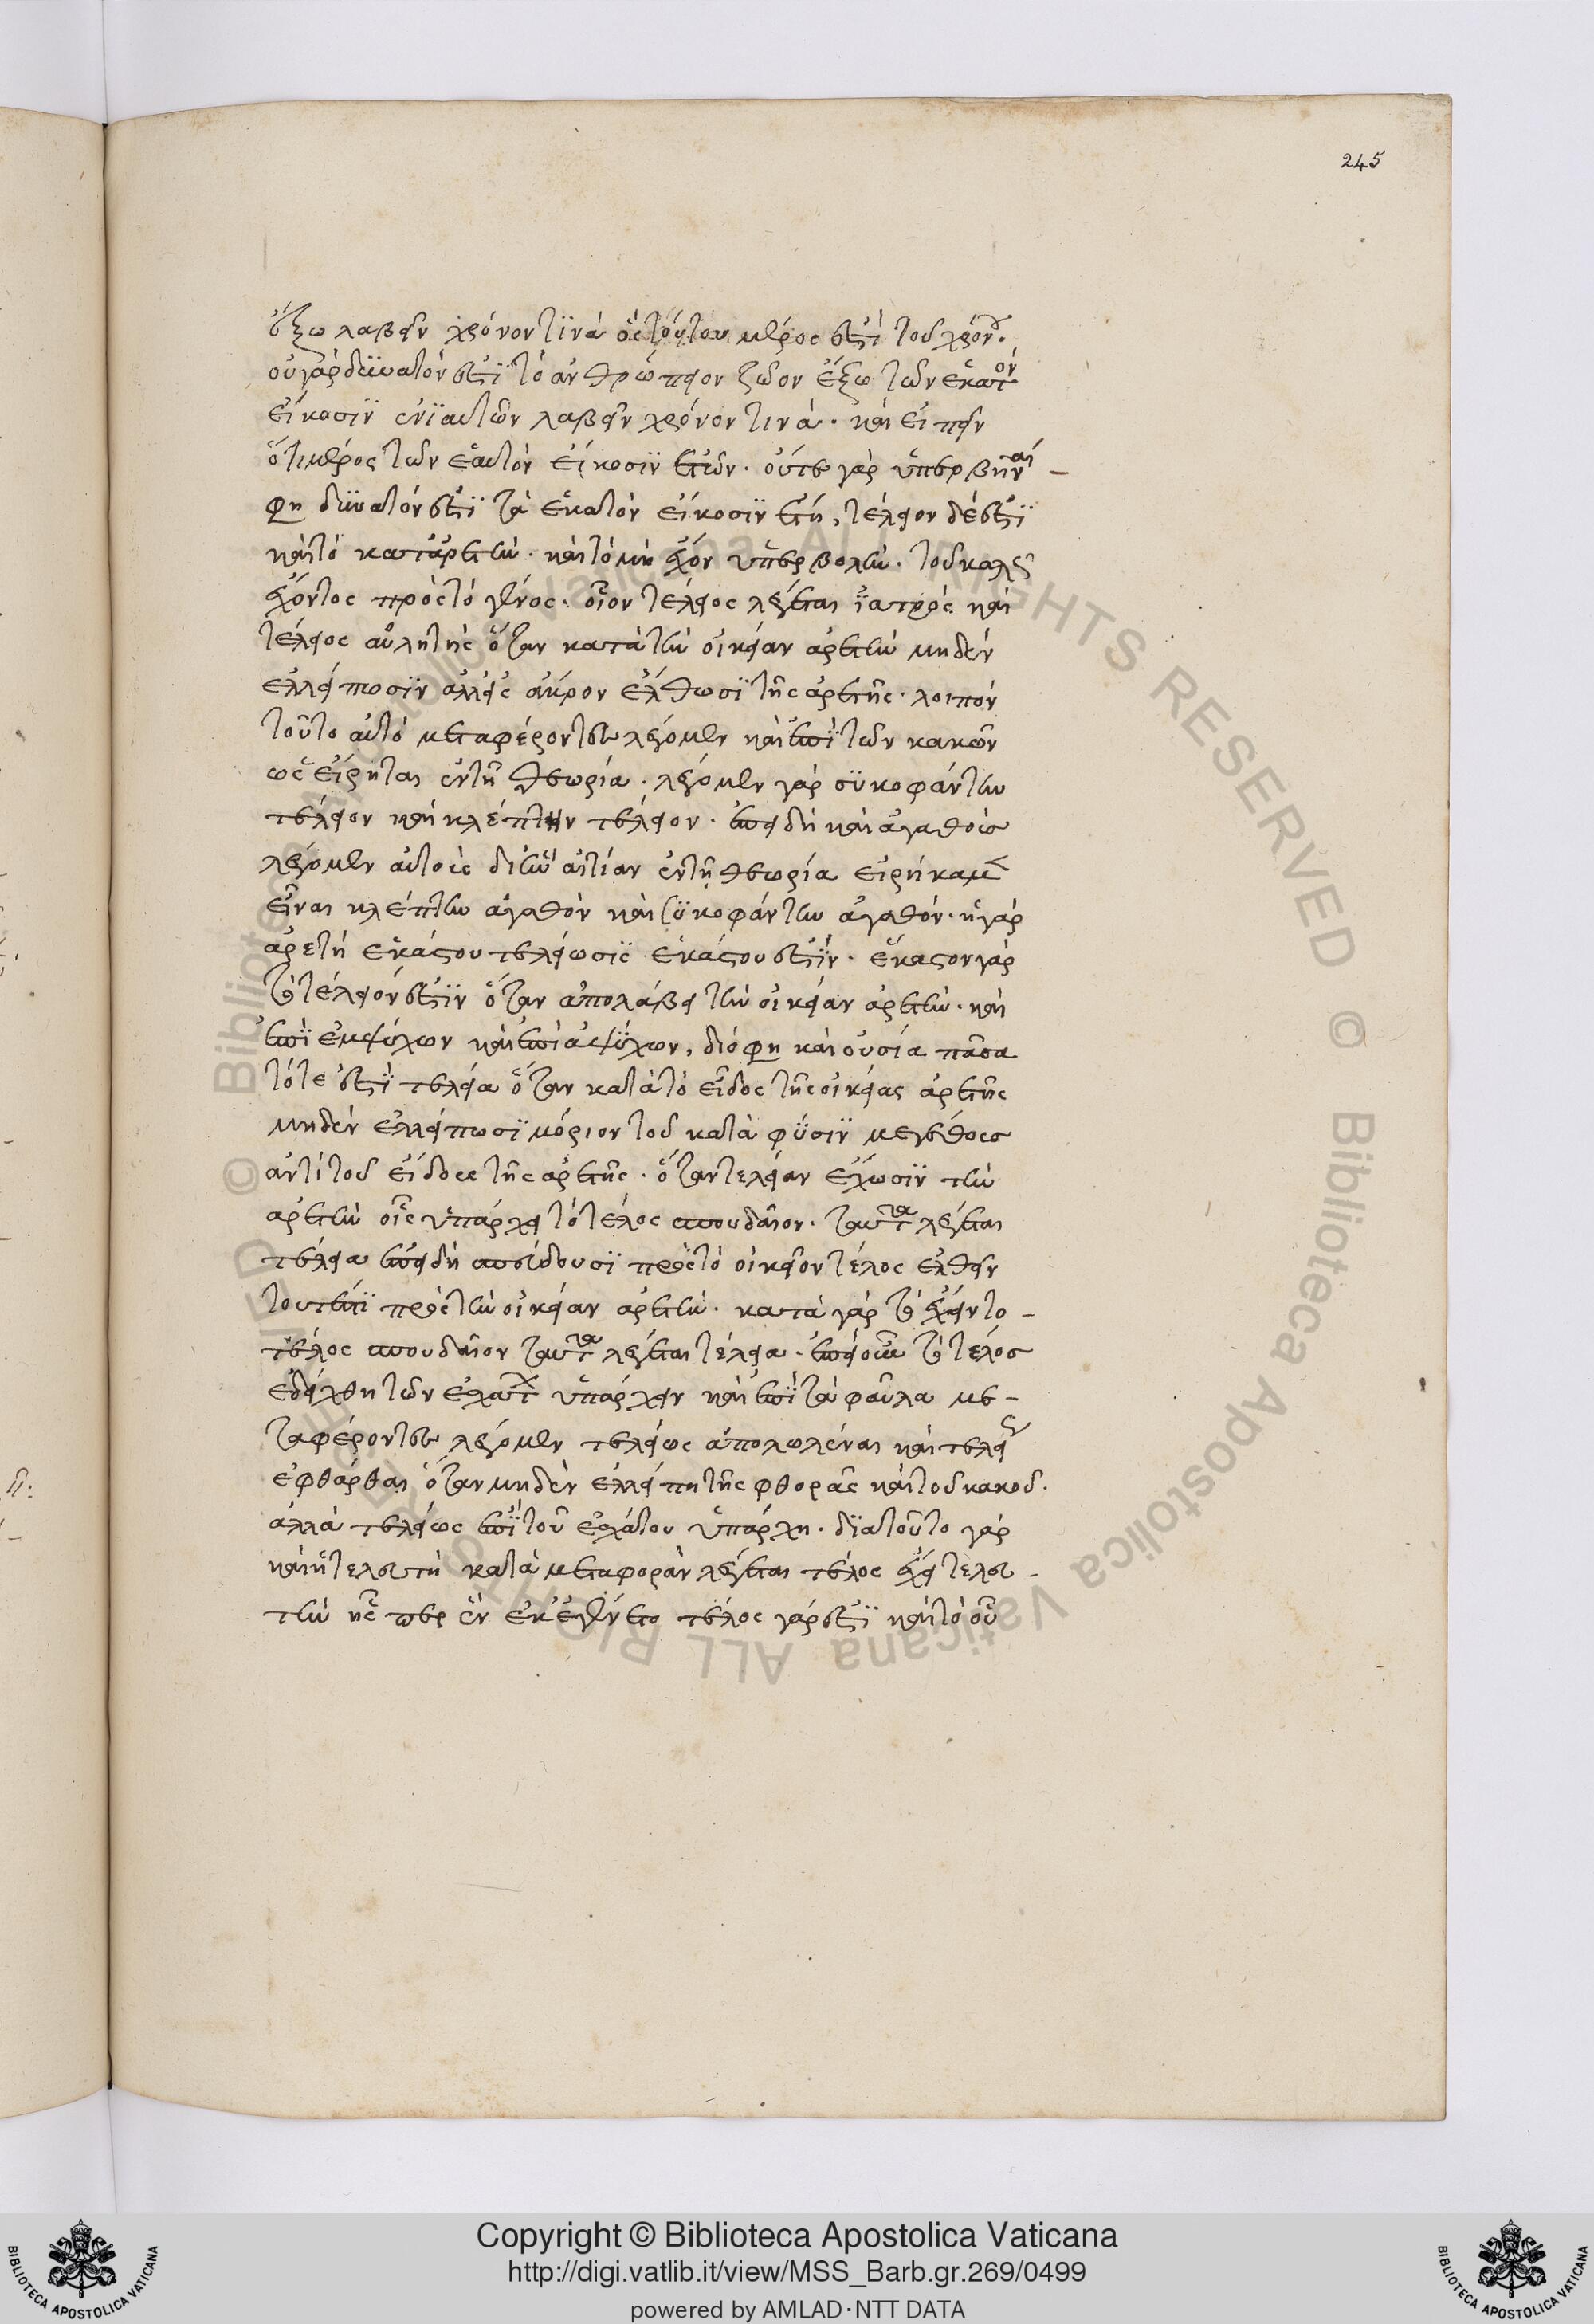 245
ἔξω λαβεῖν χρόνον τινὰ ὃς τούτου μέρος ἐστὶ τοῦ χρόνου.
οὐ γὰρ δυνατόν ἐστι τὸ ἀνθρώπειον ζῶον ἔξω τῶν ἑκατὸν
εἴκοσιν ἐνιαυτῶν λαβεῖν χρόνον τινά. καὶ εἰπεῖν
ὅτι μέρος τῶν ἑκατὸν εἴκοσιν ἐτῶν. οὔτε γὰρ ὑπερβῆναι
φη δυνατόν ἐστι τὰ ἑκατὸν εἴκοσιν ἔτη, τέλειον δέ ἐστι
καὶ τὸ κατ' ἀρετὴν. καὶ τὸ μὴ ἔχον ὑπερβολὴν. τοῦ καλῶς
ἔχοντος πρὸς τὸ γένος. οἷον τέλειος λέγεται ἰατρὸς καὶ
τέλειος αὐλητὴς ὅταν κατὰ τὴν οἰκείαν ἀρετὴν μηδὲν
ἐλλείπωσιν ἀλλ' εἰς ἄκρον ἔλθωσι τῆς ἀρετῆς. λοιπὸν
τοῦτο αὐτὸ μεταφέροντες λέγομεν καὶ ἐπὶ τῶν κακῶν
ὡς εἴρηται ἐν τῇ θεωρία. λέγομεν γὰρ συκοφάντην
τέλειον καὶ κλέπτην τέλειον. ἐπειδὴ καὶ ἀγαθοὺς
λέγομεν αὐτοὺς δι' ἣν αἰτίαν ἐν τῇ θεωρία εἰρήκαμεν
εἶναι κλέπτην ἀγαθὸν καὶ συκοφάντην ἀγαθόν. ἡ γὰρ
ἀρετὴ ἑκάστου τελείωσις ἑκάστου ἐστίν. ἕκαστον γὰρ
τότε τέλειόν ἐστιν ὅταν ἀπολάβη τὴν οἰκείαν ἀρετὴν. καὶ
ἐπὶ ἐμψύχων καὶ ἐπὶ ἀψύχων, διό φη καὶ οὐσία πᾶσα
τότε ἐστὶ τελεία ὅταν κατὰ τὸ εἶδος τῆς οἰκείας ἀρετῆς
μηδὲν ἐλλείπωσι μόριον τοῦ κατὰ φύσιν μεγέθους
ἀντὶ τοῦ εἴδους τῆς ἀρετῆς. ὅταν τελείαν ἔχωσιν τὴν
ἀρετὴν οἷς ὑπάρχει τὸ τέλος σπουδαῖον. ταῦτα λέγεται
τέλεια ἐπειδὴ σπεύδουσι πρὸς τὸ οἰκεῖον τέλος ἐλθεῖν
τουτέστι πρὸς τὴν οἰκείαν ἀρετὴν. κατὰ γὰρ τὸ ἔχειν το
τέλος σπουδαῖον ταῦτα λέγεται τέλεια. ἐπεὶ οὖν τὸ τέλος
ἐδείχθη τῶν ἐσχάτων ὑπάρχειν καὶ ἐπὶ τὰ φαῦλα με-
ταφέροντες λέγομεν τελείως ἀπολωλέναι καὶ τελείως
ἐφθάρθαι ὅταν μηδὲν ἐλλείπη τῆς φθορᾶς καὶ τοῦ κακοῦ.
ἀλλὰ τελείως ἐπὶ τοῦ ἐσχάτου ὑπάρχη. διὰ τοῦτο γὰρ
καὶ ἡ τελευτὴ κατὰ μεταφορὰν λέγεται τέλος ἔχει τελευ-
τὴν ἧσπερ ἓν ἐκ ἐγένετο τέλος γάρ ἐστι καὶ τὸ οὗ
Copyright © Biblioteca Apostolica Vaticana
http://digi.vatlib.it/view/MSS_Barb.gr.269/0499
powered by AMLAD·NTT DATA